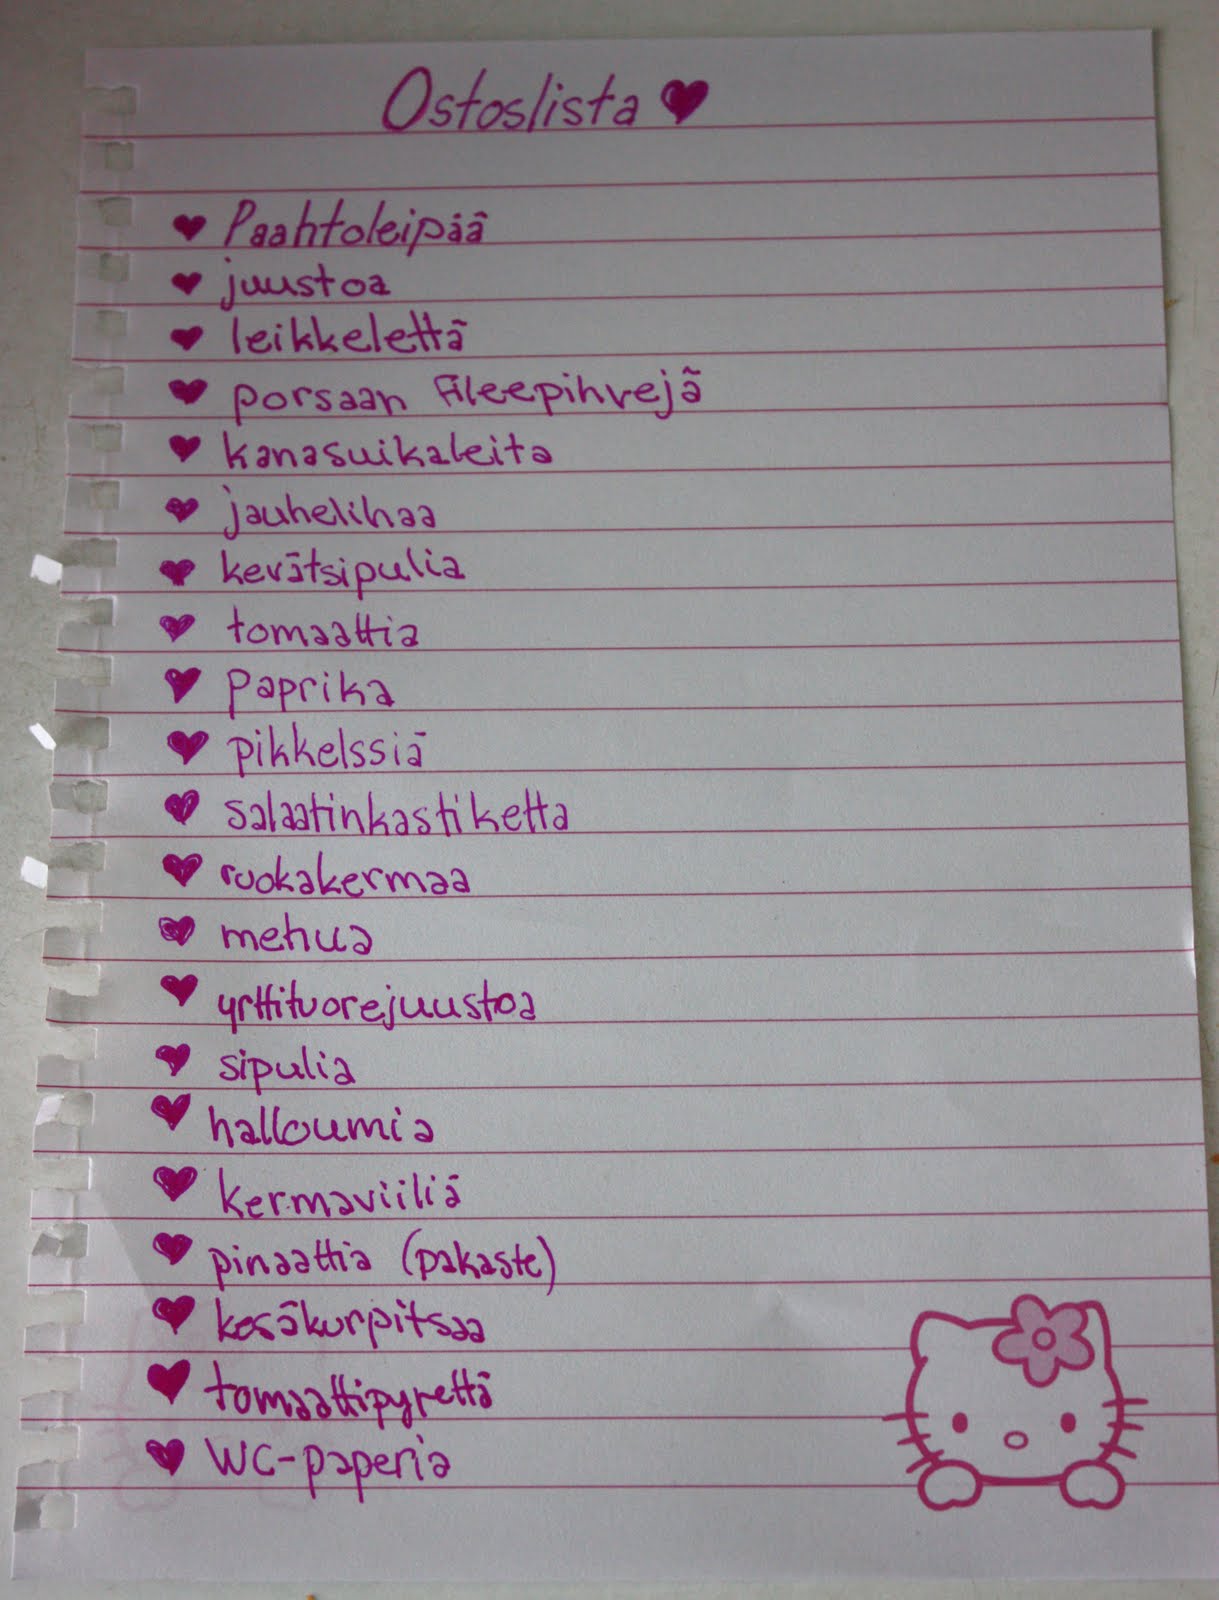 Ostoslista
Paahtoleipää
juustoa
leikkelettä
porsaan fileepihvejä
kanasuikaleita
jauhelihaa
kevätsipulia
tomaattia
paprika
pikkelssiä
salaatinkastiketta
ruokakermaa
mehua
yrttituorejuustoa
sipulia
halloumia
kermaviiliä
pinaattia (pakaste)
kesäkurpitsaa
tomaattipyrettä
WC-paperia